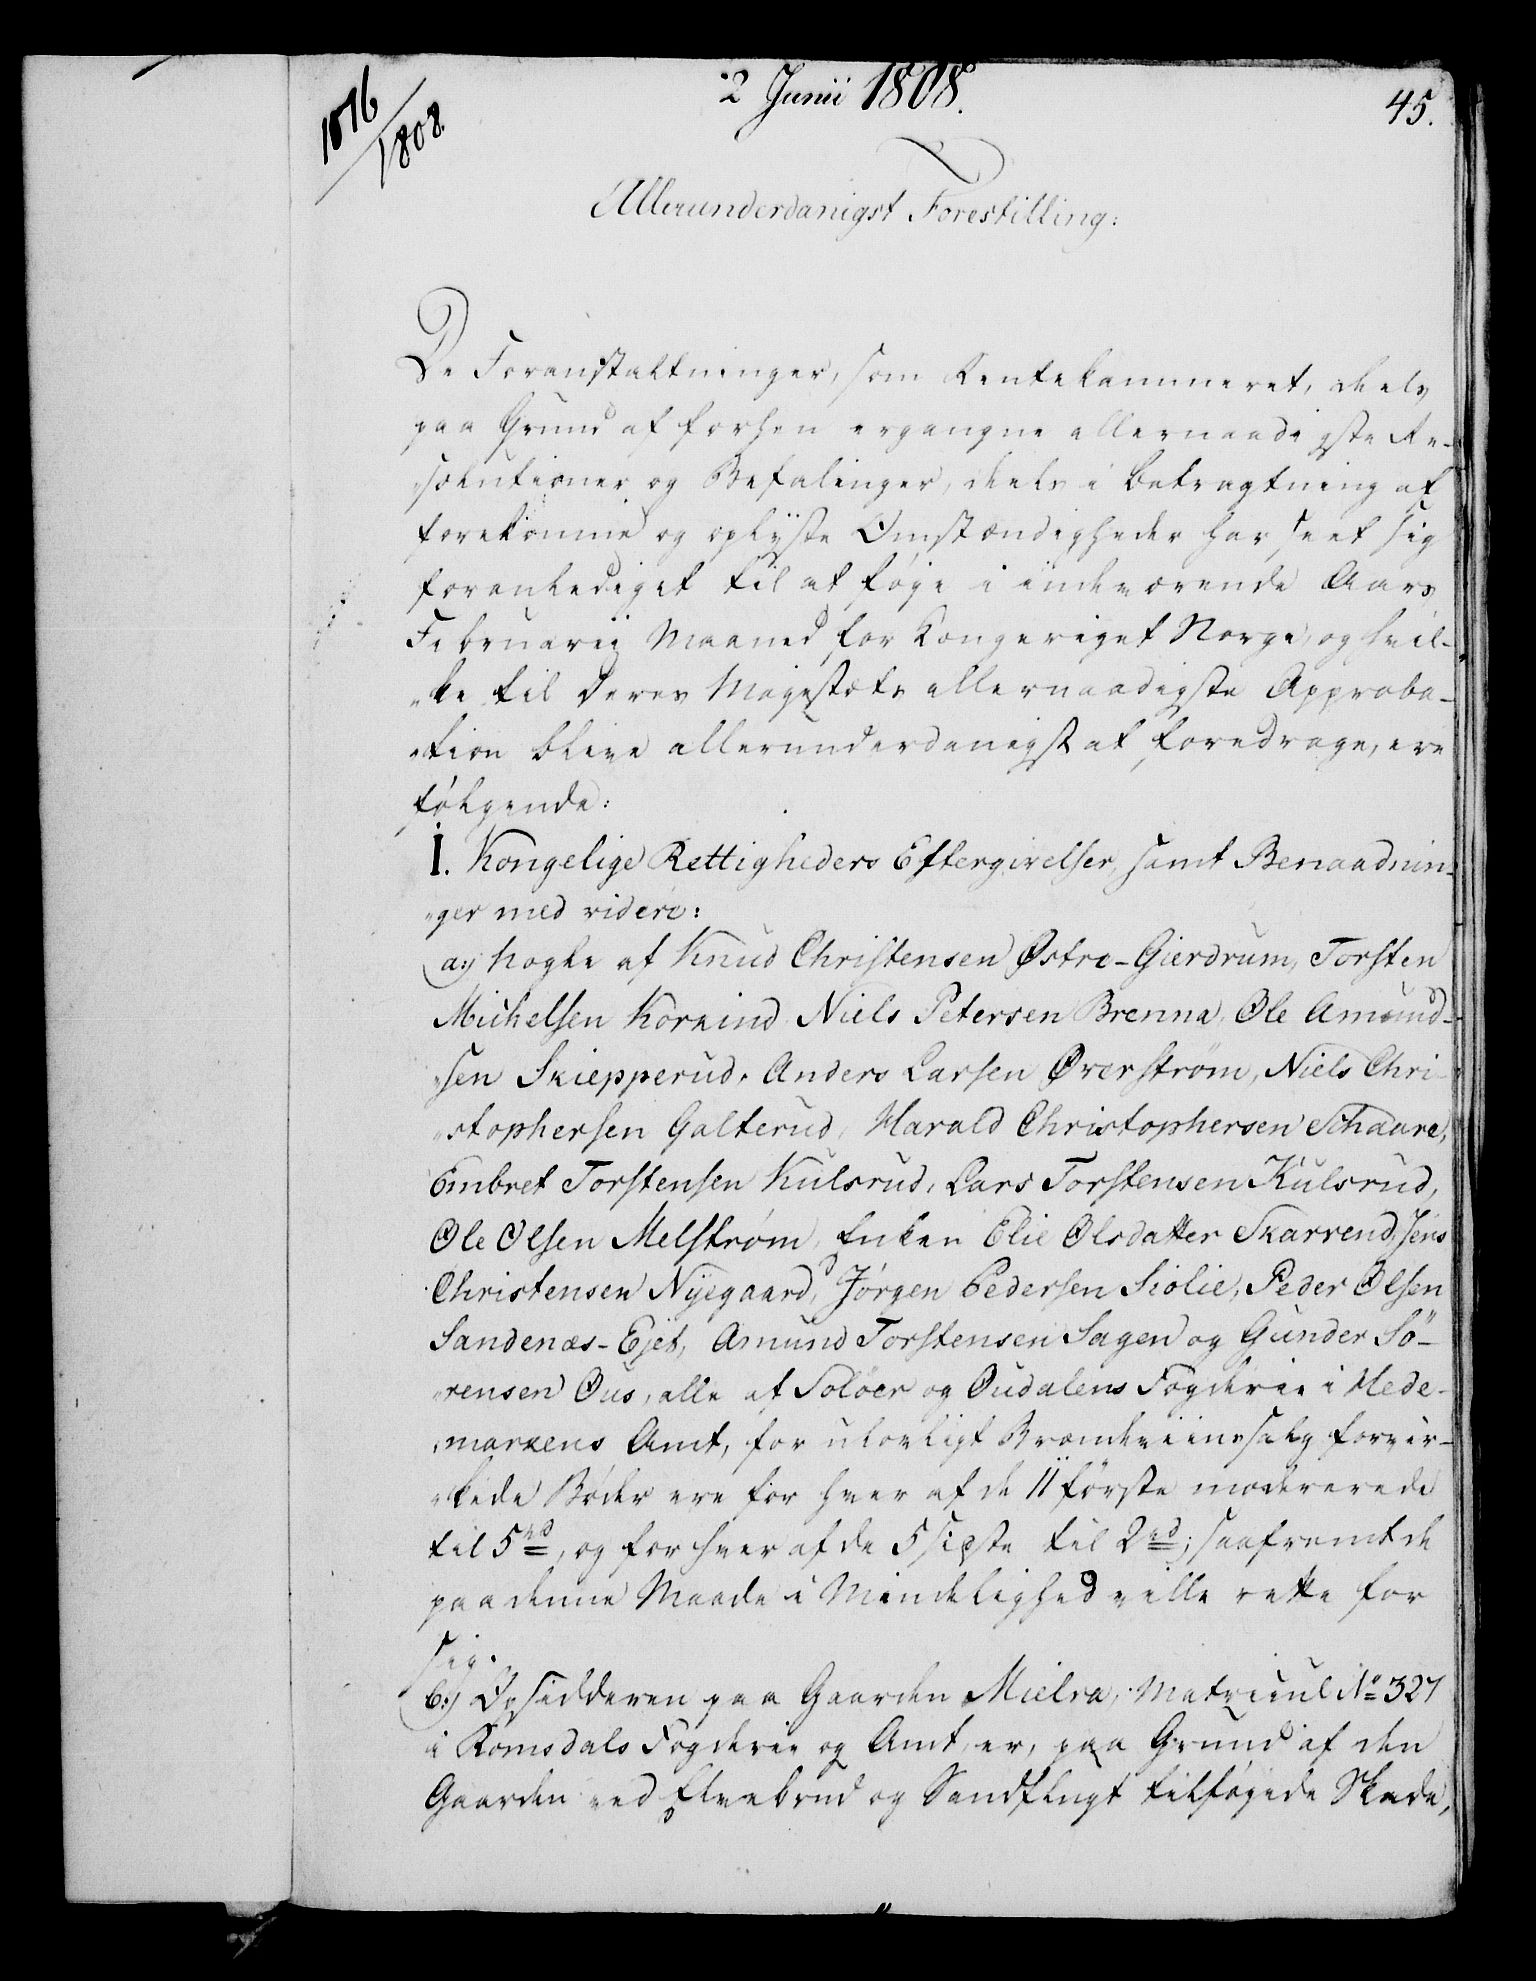 1816/1808.
2 Junii 1808.
45.
Allerunderdanigst Forestilling:
De Foranstaltninger, som Rentekammeret, deels
paa Grund af forhen ergangne allernaadigste Re-
„solutioner og Befalinger, deels i Betragtning af
forekomne og oplyste Omstændigheder har seet sig
foranlediget til at føye i indeværende Aars
Februarij Maaned for Kongeriget Norge, og hvil-
„ke til Deres Majestæts allernaadigste Approba-
„tion blive allerunderdanigst at foredrage, ere
følgende:
I. Kongelige Rettigheders Eftergivelser, samt Benaadnin-
„ger med videre:
a:) Nogle af Knud Christensen Østre-Gierdrum, Torsten
Michelsen Kornind, Niels Petersen Brenna, Ole Amund-
„sen Skiepperud, Anders Larsen Øverstrøm, Niels Chri-
„stophersen Galterud, Harald Christophersen Schaare,
Embret Torstensen Kulsrud, Lars Torstensen Kulsrud,
Ole Olsen Melstrøm, Enken Elie Olsdatter Skarrend, Jens
Christensen Nyegaard, Jørgen Pedersen Siolie, Peder Olsen
Sandenæs-Ejet, Amund Torstensen Sagen og Gunder Sö-
„rensen Ous, alle af Soløer og Oudalens Fogderie i Hede-
„markens Amt, for ulovligt Brændeviinssalg forvir-
„kede Bøder ere for hver af de 11 første modererede
til 5 rd, og for hver af de 5 sidste til 2 rd; saafremt de
paa denne Maade i Mindelighed ville rette for
sig.
b:) Opsidderen paa Gaarden Mielva, Matricul No 327
i Romsdals Fogderie og Amt, er, paa Grund af den
Gaarden ved Elvebrud og Sandflugt tilføyede Skade,